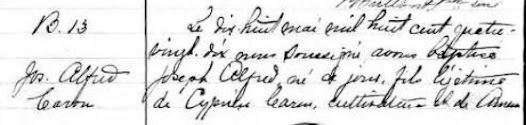 B. 13
Jos. Alfred
Caron
Le dix huit mai mil huit cent quatre-
vingt-dix nous soussigné avons baptisé
Joseph Alfred, né ce jour, fils légitime
de Cyprien Caron, cultivateur et de